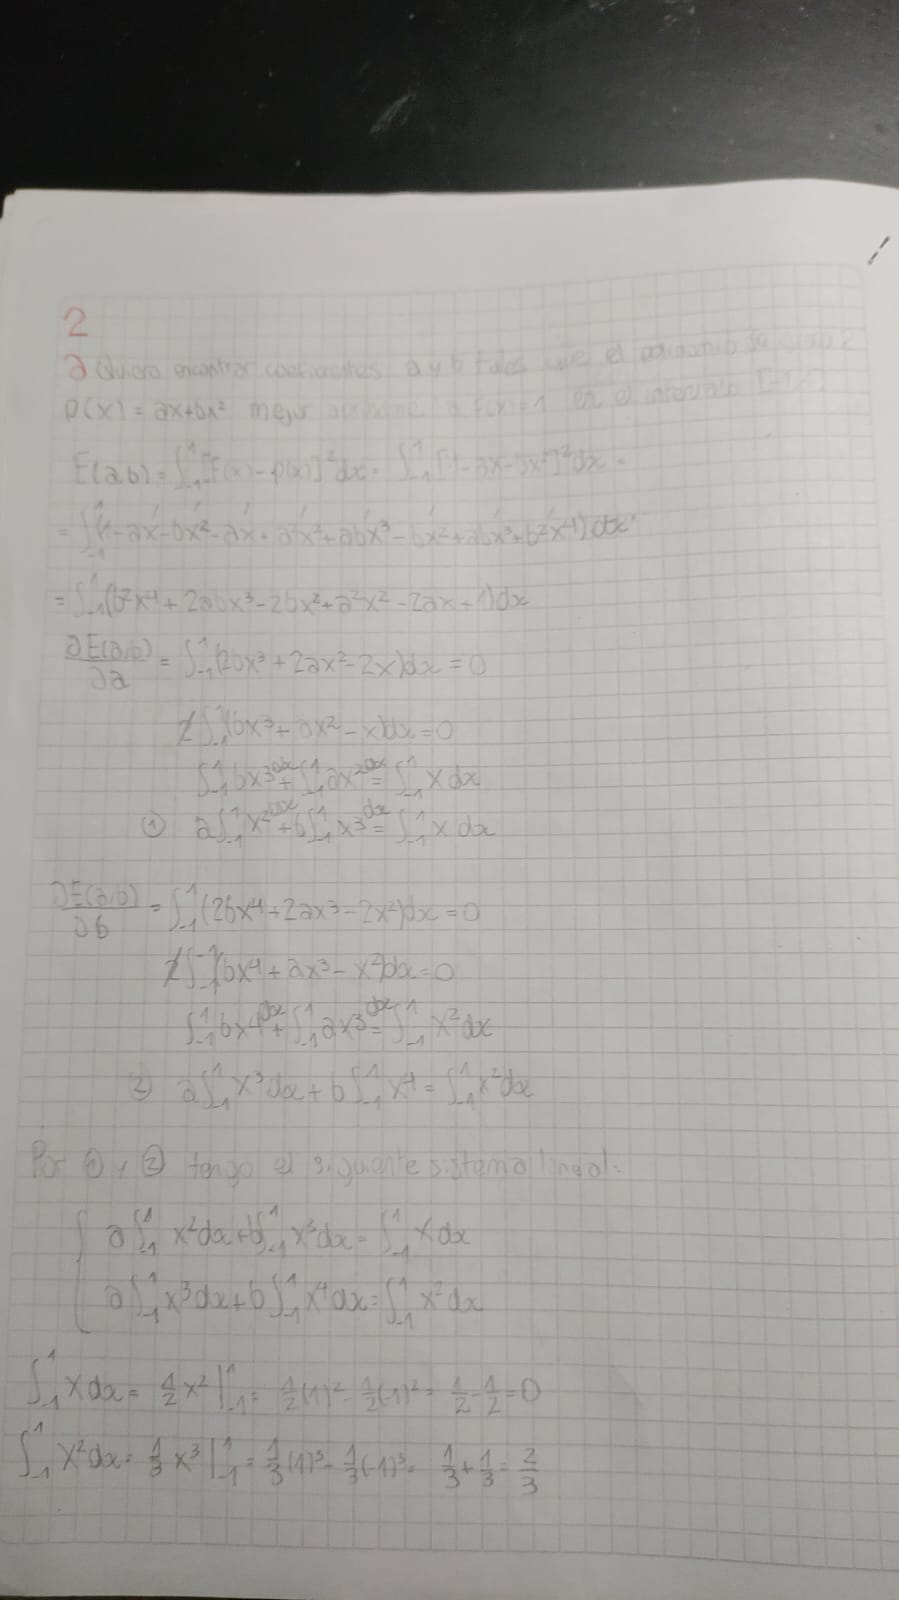 2
a Quiero encontrar coeficientes a y b tales que el polinomio
p(x) = ax+bx² mejor aproxime a f(x)=1 en el intervalo [-1,1]
E(a,b) = ∫₋₁¹ [f(x) - p(x)]² dx = ∫₋₁¹ [1-ax-bx²]² dx =
= ∫₋₁¹ (1-ax-bx²-ax+a²x²+abx³-bx²+abx³+b²x⁴) dx
= ∫₋₁¹ (b²x⁴ + 2abx³ - 2bx² + a²x² - 2ax + 1) dx
∂E(a,b)/∂a = ∫₋₁¹ (2bx³ + 2ax² - 2x) dx = 0
2 ∫₋₁¹ (bx³ + ax² - x) dx = 0
∫₋₁¹ bx³ dx + ∫₋₁¹ ax² dx = ∫₋₁¹ x dx
① a ∫₋₁¹ x² dx + b ∫₋₁¹ x³ dx = ∫₋₁¹ x dx
∂E(a,b)/∂b = ∫₋₁¹ (2bx⁴ + 2ax³ - 2x²) dx = 0
2 ∫₋₁¹ (bx⁴ + ax³ - x²) dx = 0
∫₋₁¹ bx⁴ dx + ∫₋₁¹ ax³ dx = ∫₋₁¹ x² dx
② a ∫₋₁¹ x³ dx + b ∫₋₁¹ x⁴ = ∫₋₁¹ x² dx
Por ① y ② tengo el siguiente sistema lineal:
{ a ∫₋₁¹ x² dx + b ∫₋₁¹ x³ dx = ∫₋₁¹ x dx
a ∫₋₁¹ x³ dx + b ∫₋₁¹ x⁴ dx = ∫₋₁¹ x² dx
∫₋₁¹ x dx = 1/2 x² |₋₁¹ = 1/2 (1)² - 1/2 (-1)² = 1/2 - 1/2 = 0
∫₋₁¹ x² dx = 1/3 x³ |₋₁¹ = 1/3 (1)³ - 1/3 (-1)³ = 1/3 + 1/3 = 2/3